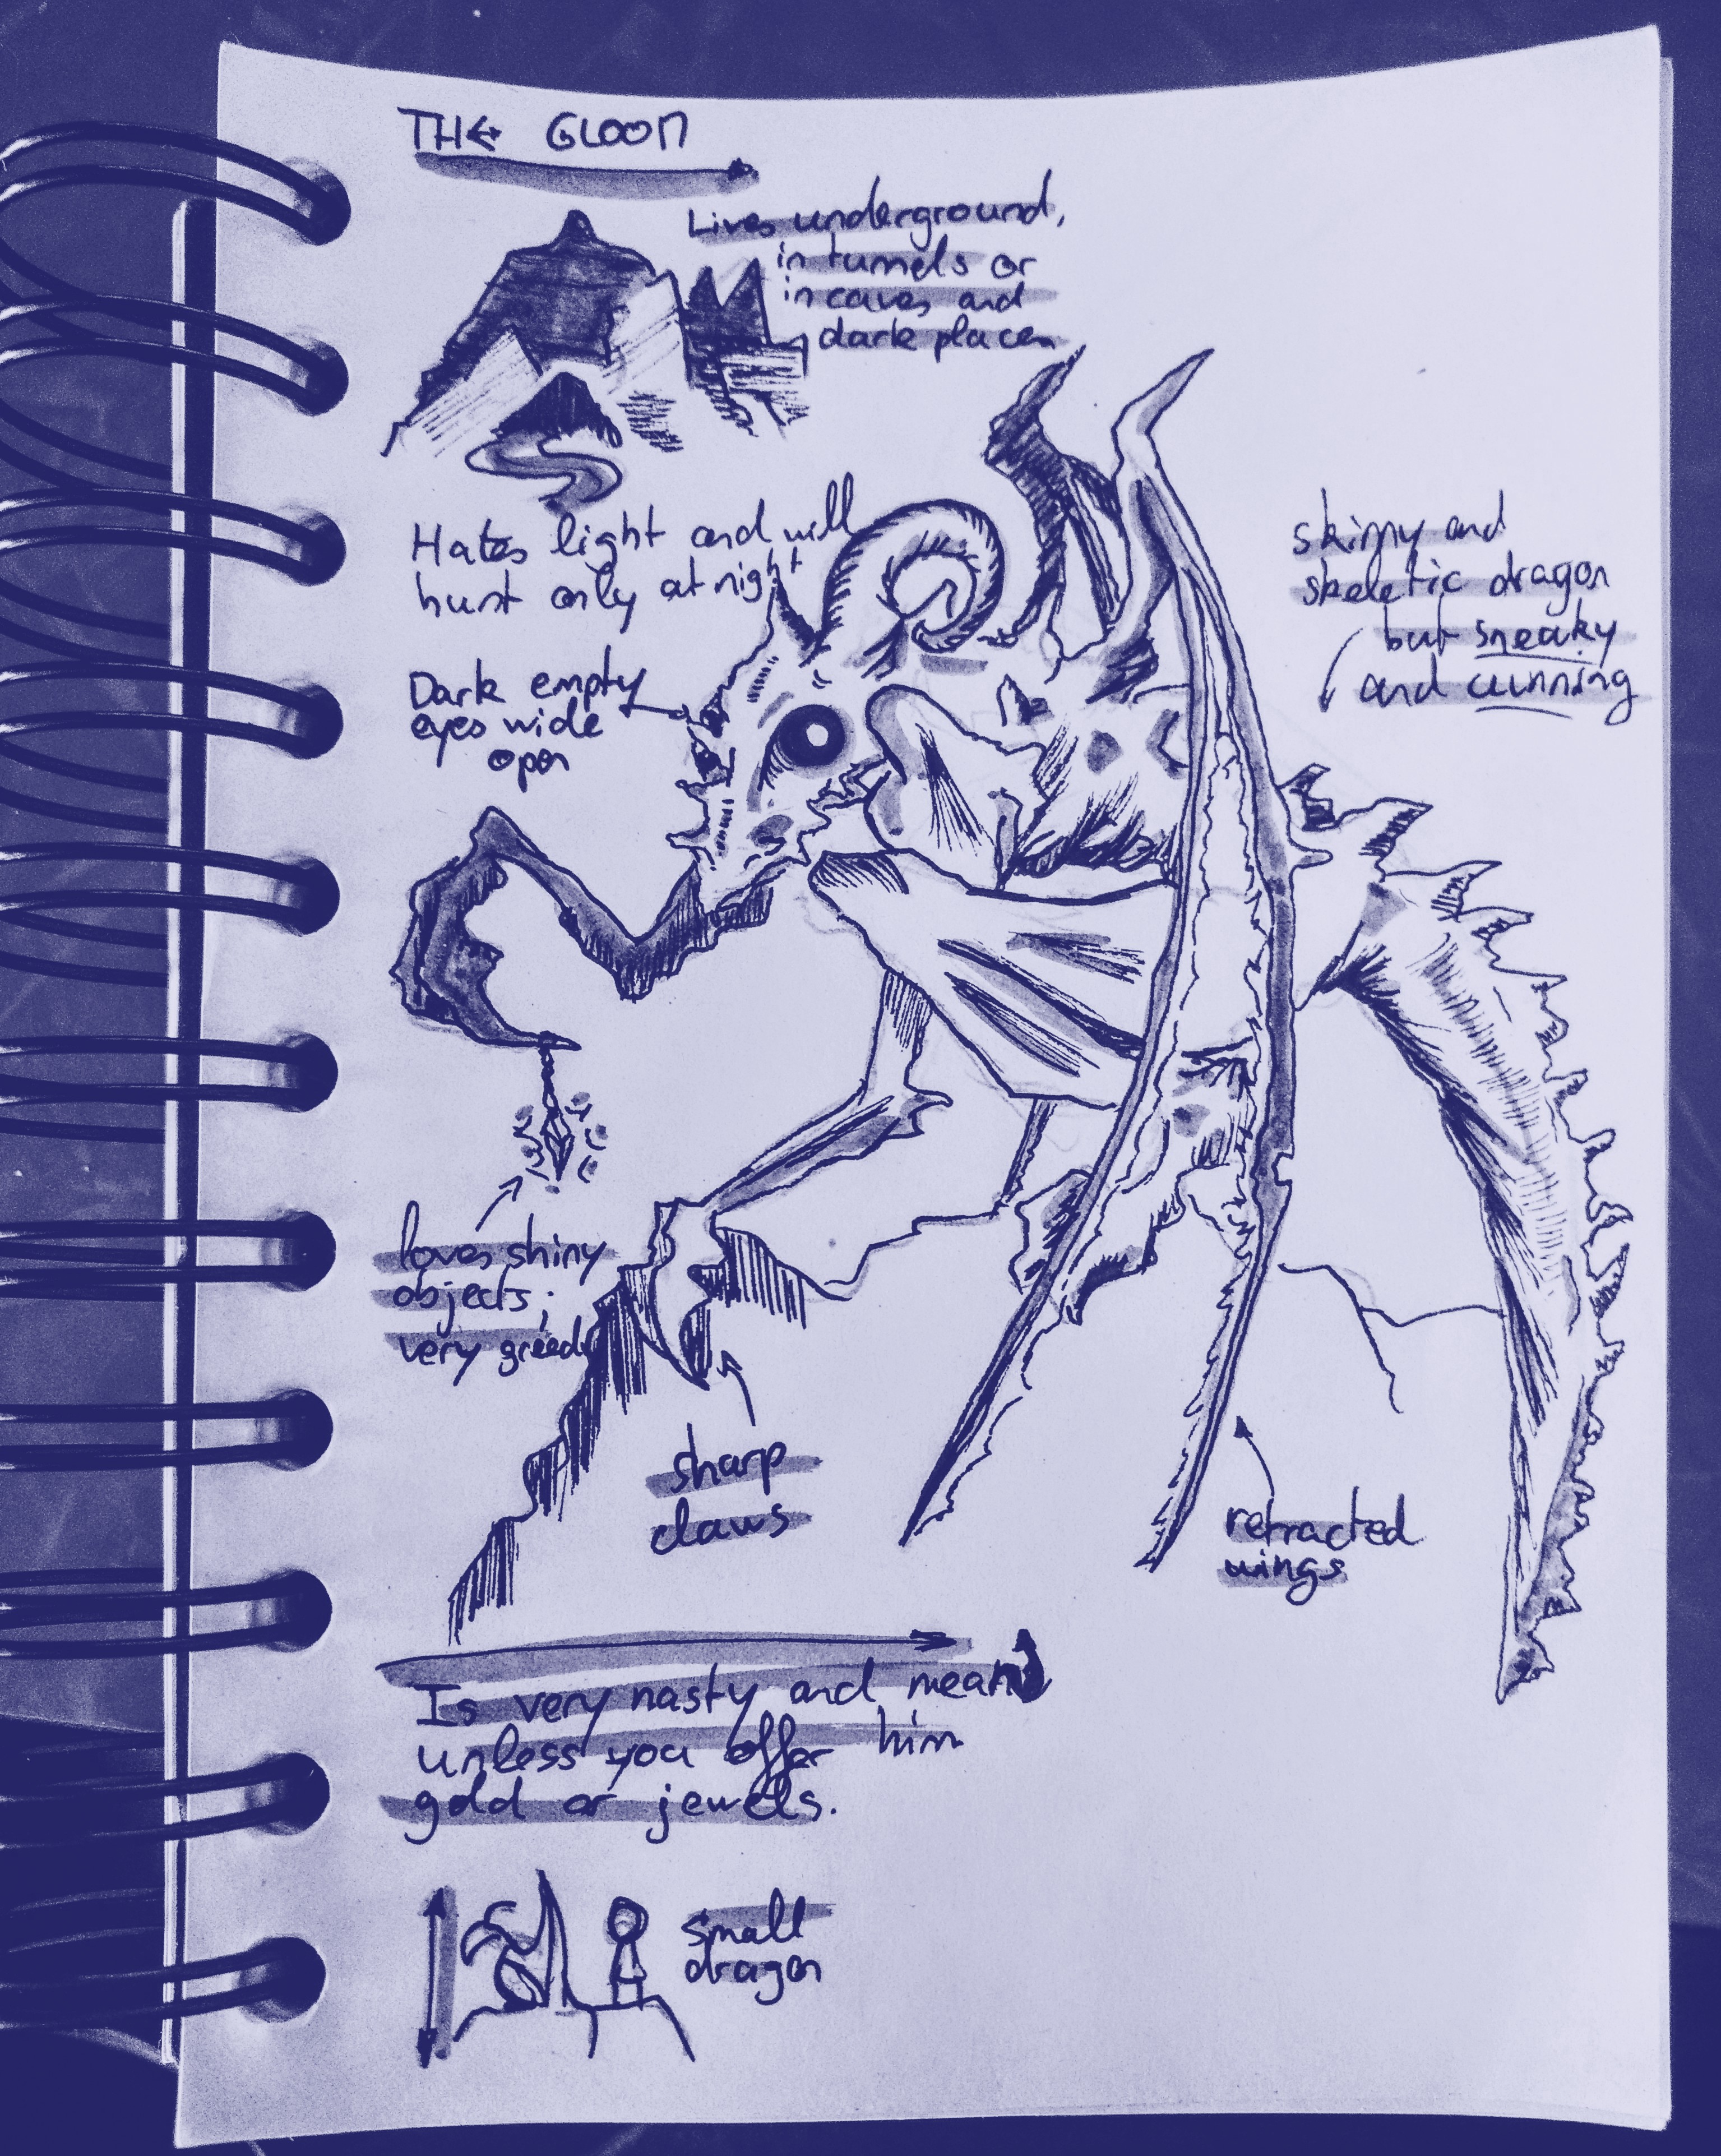 THE GLOOM
Lives underground,
in tunnels or
in caves and
dark places
Hates light and will
hunt only at night
skinny and
skeletic dragon
but sneaky
and cunning
Dark empty
eyes wide
open
loves shiny
objects;
very greedy
sharp
claws
retracted
wings
Is very nasty and mean
unless you offer him
gold or jewels.
small
dragon